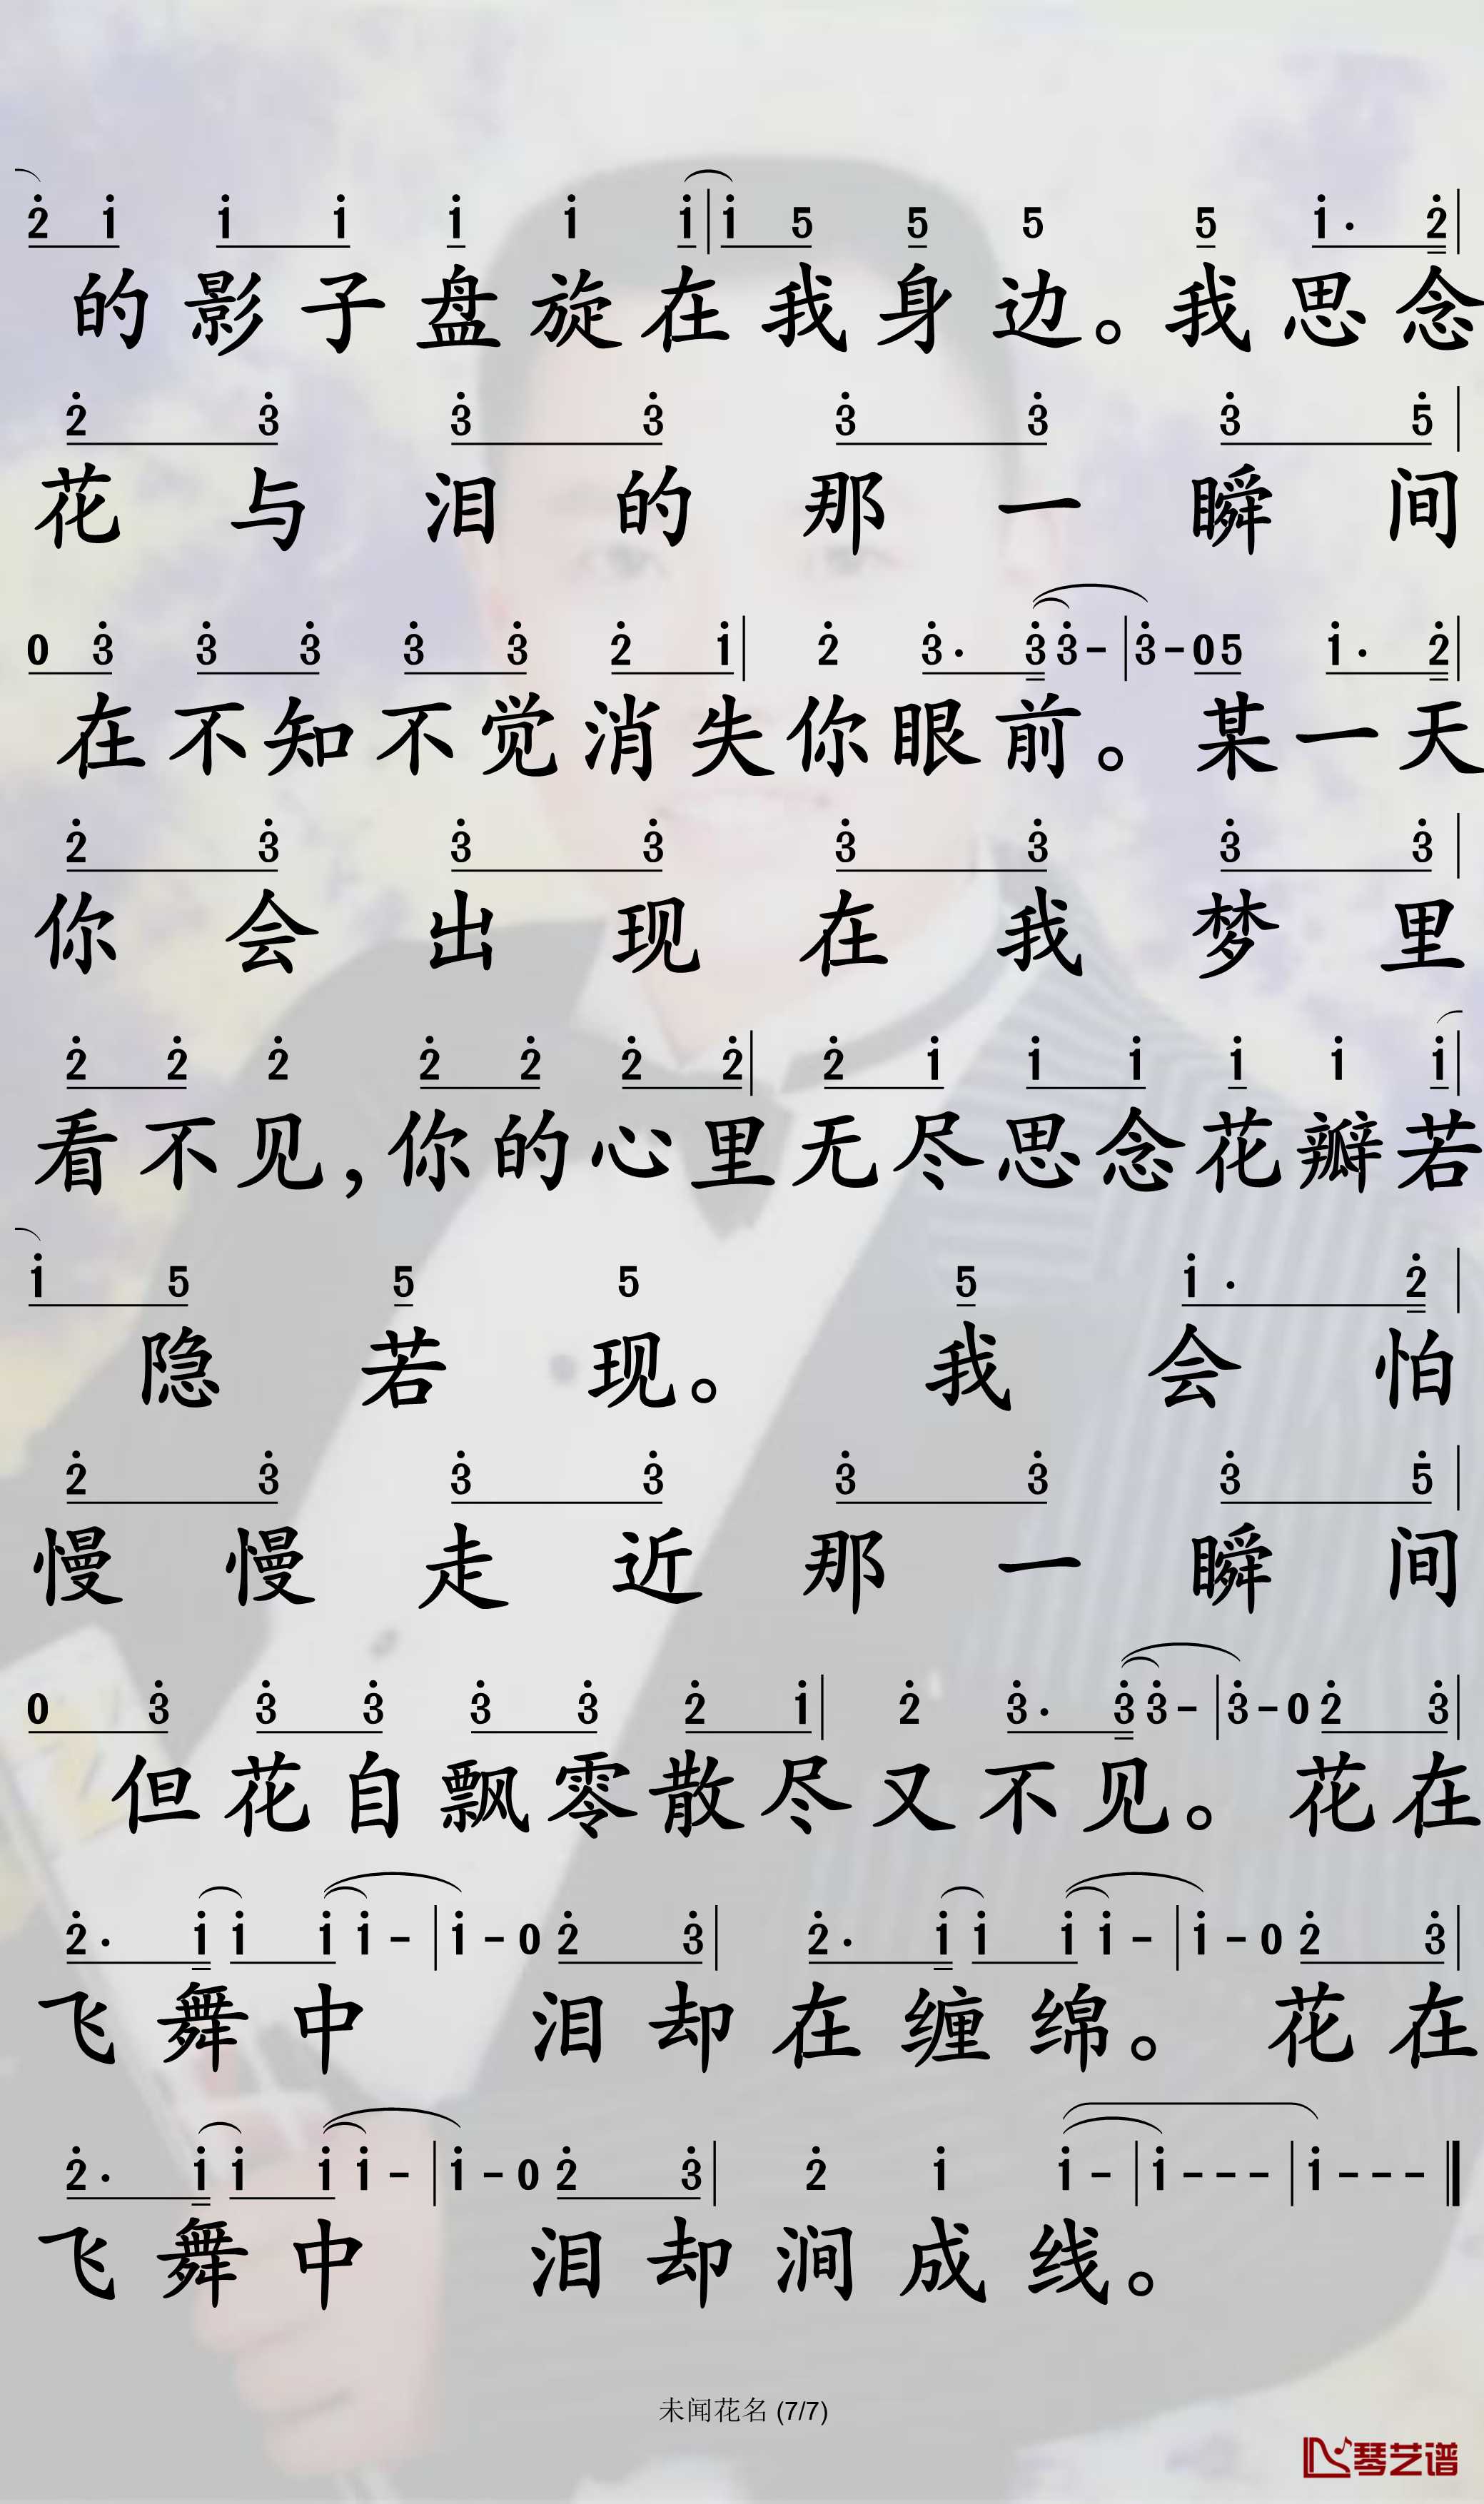 2 1 1 1 1 1 1 | 1 5 5 5 5 1 · 2 |
的影子盘旋在我身边。我思念
2 3 3 3 3 3 3 5 |
花与泪的那一瞬间
0 3 3 3 3 3 2 1 | 2 3 · 3 3 - | 3 - 0 5 1 · 2 |
在不知不觉消失你眼前。某一天
2 3 3 3 3 3 3 3 |
你会出现在我梦里
2 2 2 2 2 2 2 | 2 1 1 1 1 1 1 |
看不见,你的心里无尽思念花瓣若
1 5 5 5 5 1 · 2 |
隐若现。我会怕
2 3 3 3 3 3 3 5 |
慢慢走近那一瞬间
0 3 3 3 3 3 2 1 | 2 3 · 3 3 - | 3 - 0 2 3 |
但花自飘零散尽又不见。花在
2 · 1 1 1 1 - | 1 - 0 2 3 | 2 · 1 1 1 1 - | 1 - 0 2 3 |
飞舞中 泪却在缠绵。花在
2 · 1 1 1 1 - | 1 - 0 2 3 | 2 1 1 - | 1 - - - | 1 - - - ‖
飞舞中 泪却涧成线。
未闻花名 (7/7)
琴艺谱